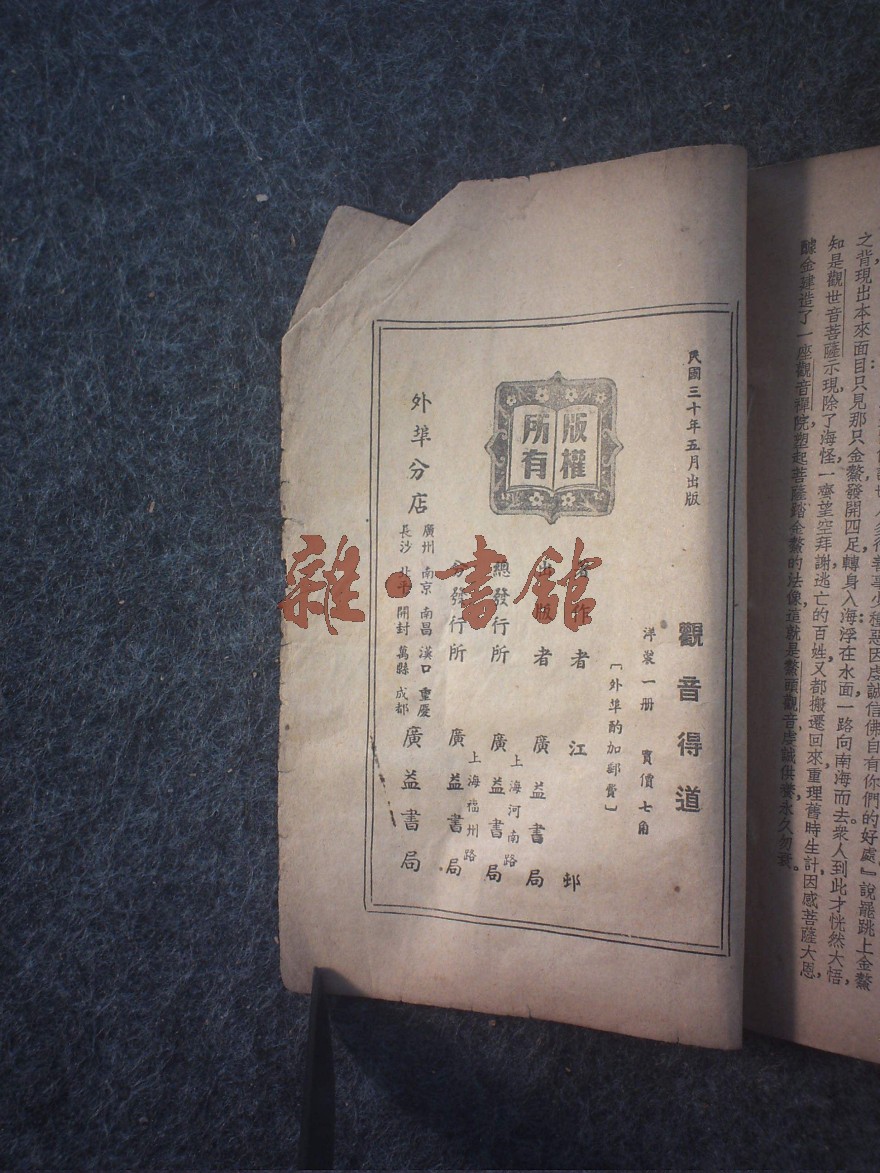 之背現出本來面目只見那只金鰲發開四足轉身入海浮在水面一路向南海而去衆人到此才恍然大悟,
知是觀世音菩薩示現除了海怪一齊望空拜謝逃亡的百姓又都搬遷回來重理舊時生計因感菩薩大恩,
醵金建造了一座觀音禪院塑起菩薩踏金鰲的法像這就是鰲頭觀音虔誠供奉永久勿衰。
民國三十年五月出版
版權
所有
觀音得道
洋裝一册 實價七角
〔外埠酌加郵費〕
著作者 江邨
出版者 廣益書局
上海河南路
總發行所 廣益書局
上海福州路
分發行所 廣益書局
外埠分店
廣州 南京 南昌 漢口 重慶
長沙 北平 開封 萬縣 成都
廣益書局
雜·書館